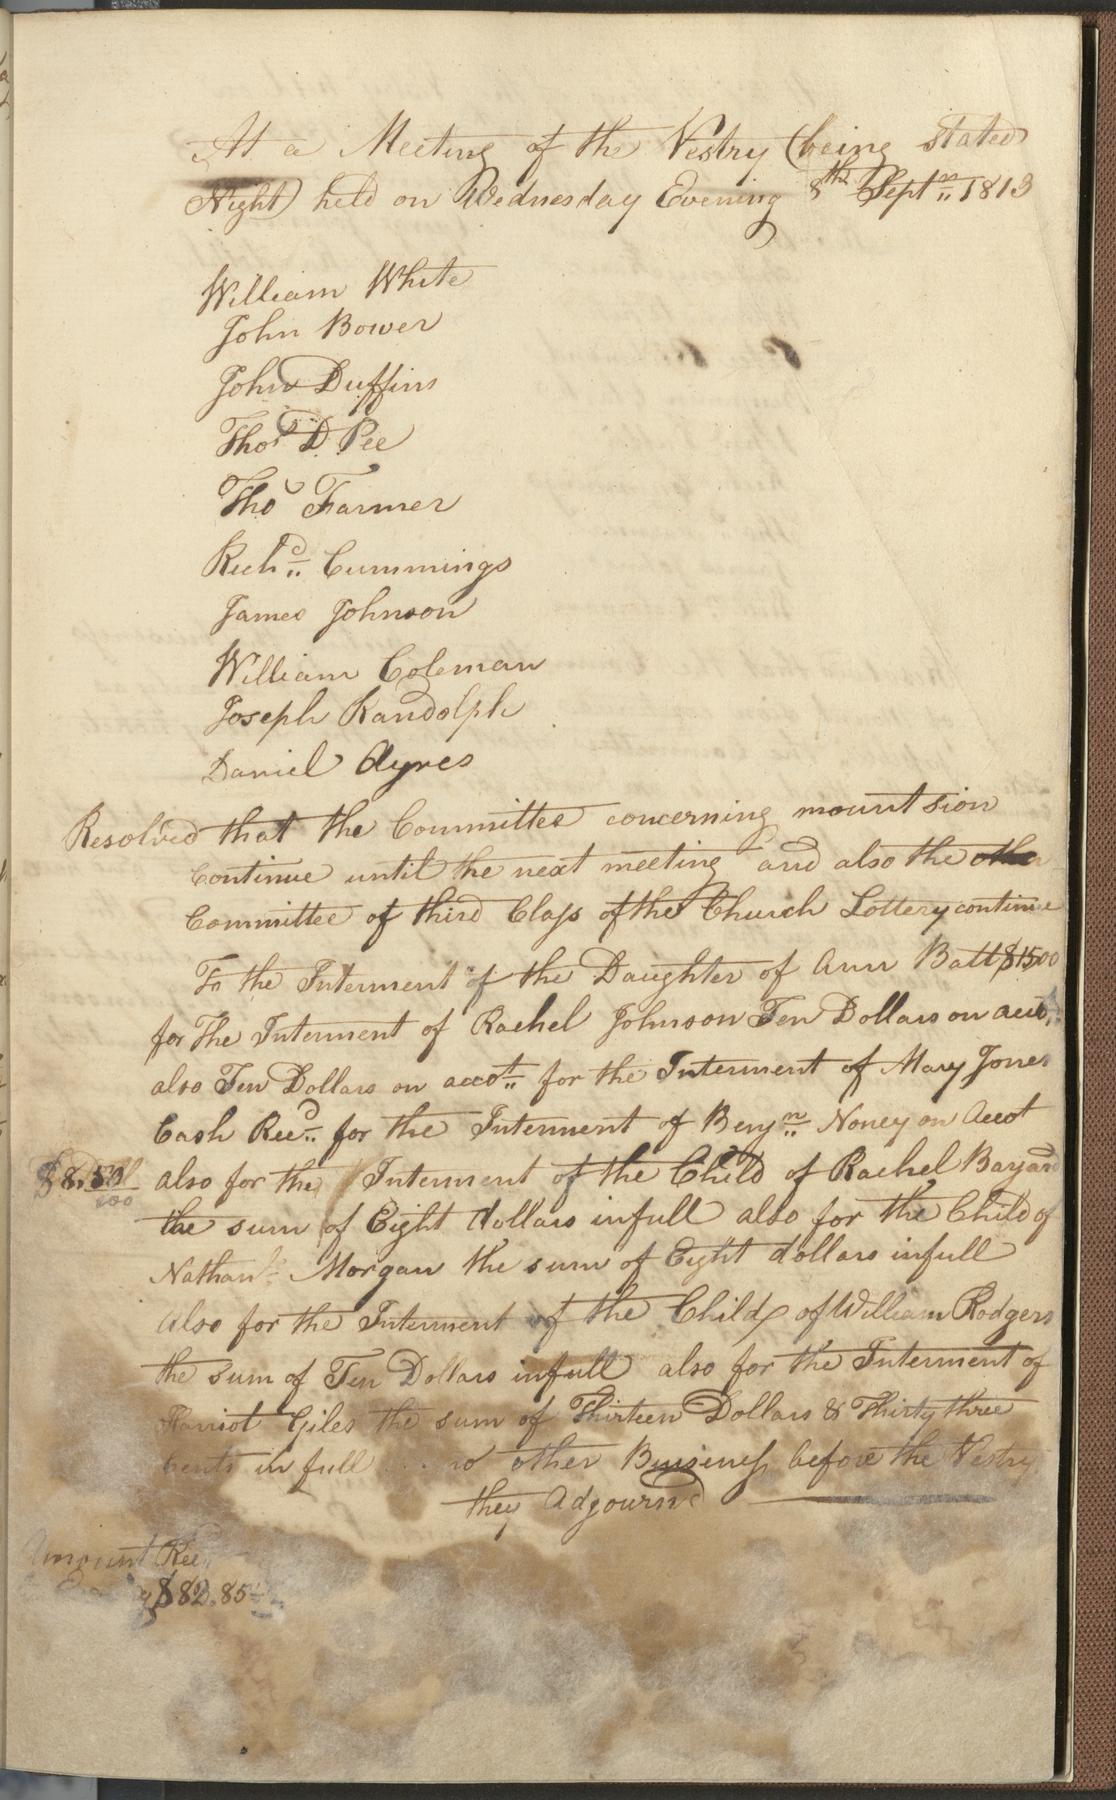 At a Meeting of the Vestry (being stated
Night) held on Wednesday Evening 8th Septm 1813
William White
John Bower
John Duffins
Thos D Pee
Tho Farmer
Richd Cummings
James Johnson
William Coleman
Joseph Randolph
Daniel Ayres
Resolved that the Committee concerning mount sion
Continue until the next meeting and also the other
Committee of third Class of the Church Lottery continue
To the Interment of the Daughter of Ann Batt $1500
for The Interment of Rachel Johnson Ten Dollars on acct
also Ten Dollars on accot for the Interment of Mary Jones
Cash Recd for the Interment of Benjn Noney on Accot
$8.50/100 also for the Interment of the Child of Rachel Bayard
the sum of Eight dollars in full also for the Child of
Nathanl Morgan the sum of Eight dollars in full
Also for the Interment of the Child of William Rodgers
the sum of Ten Dollars in full also for the Interment of
Harriot Giles the sum of Thirteen Dollars & Thirty three
Cents in full no other Business before the Vestry
they Adjournd
Amount Recd
$82.85